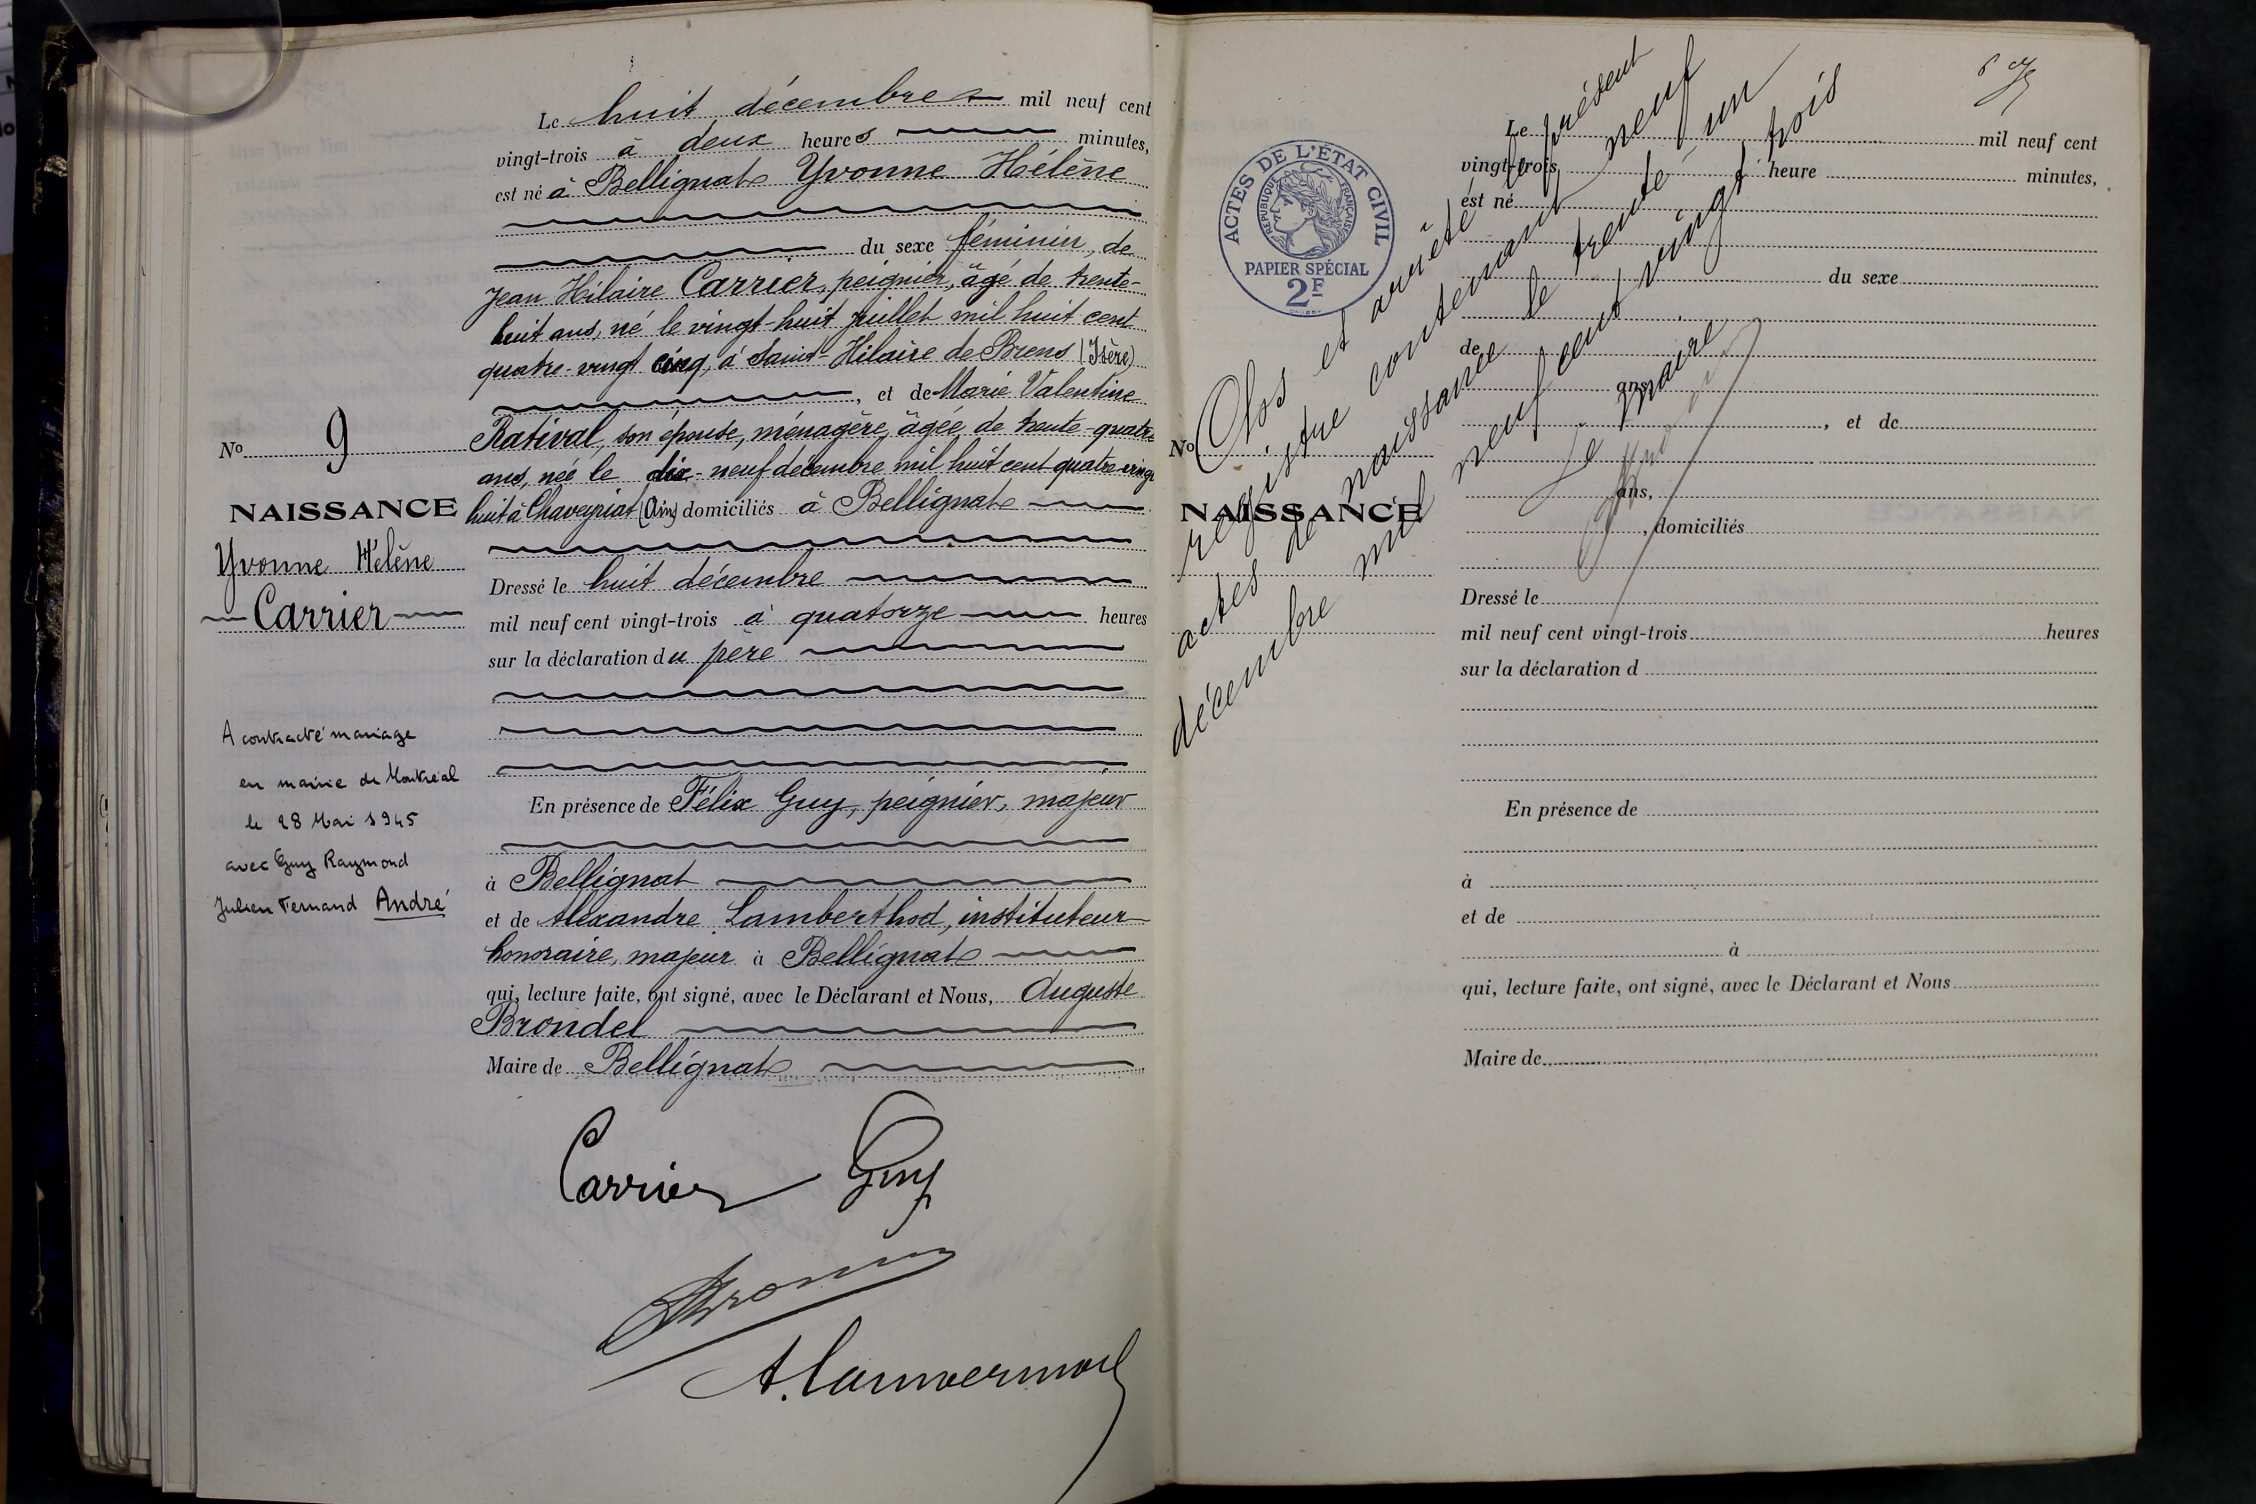 Le huit décembre mil neuf cent
vingt-trois à deux heures minutes,
est né à Bellignat Yvonne Hélène
du sexe féminin, de
Jean Hilaire Carrier, peignier, âgé de trente-
huit ans, né le vingt-huit juillet mil huit cent
quatre-vingt cinq, à Saint-Hilaire de Brens (Isère)
, et de Marie Valentine
Ratival, son épouse, ménagère, âgée de trente-quatre
ans, née le dix-neuf décembre mil huit cent quatre-vingt
huit à Chaveyriat (Ain) domiciliés à Bellignat
Dressé le huit décembre
mil neuf cent vingt-trois à quatorze heures
sur la déclaration du père
En présence de Félix Guy, peignier, majeur
à Bellignat
et de Alexandre Lamberthod, instituteur
honoraire, majeur à Bellignat
qui, lecture faite, ont signé, avec le Déclarant et Nous, Auguste
Brondel
Maire de Bellignat
Carrier Guy
No 9
NAISSANCE
Yvonne Hélène
Carrier
A contracté mariage
en mairie de Montréal
le 28 Mai 1945
avec Guy Raymond
Julien Fernand André
ACTES DE L'ÉTAT CIVIL
RÉPUBLIQUE FRANÇAISE
PAPIER SPÉCIAL
2F
Clos et arrêté le présent
registre contenant neuf
actes de naissance le trente un
décembre mil neuf cent vingt trois
Le maire
No
NAISSANCE
Le mil neuf cent
vingt-trois heure minutes,
est né
du sexe
de
ans
, et de
ans,
, domiciliés
Dressé le
mil neuf cent vingt-trois heures
sur la déclaration d
En présence de
à
et de
à
qui, lecture faite, ont signé, avec le Déclarant et Nous
Maire de